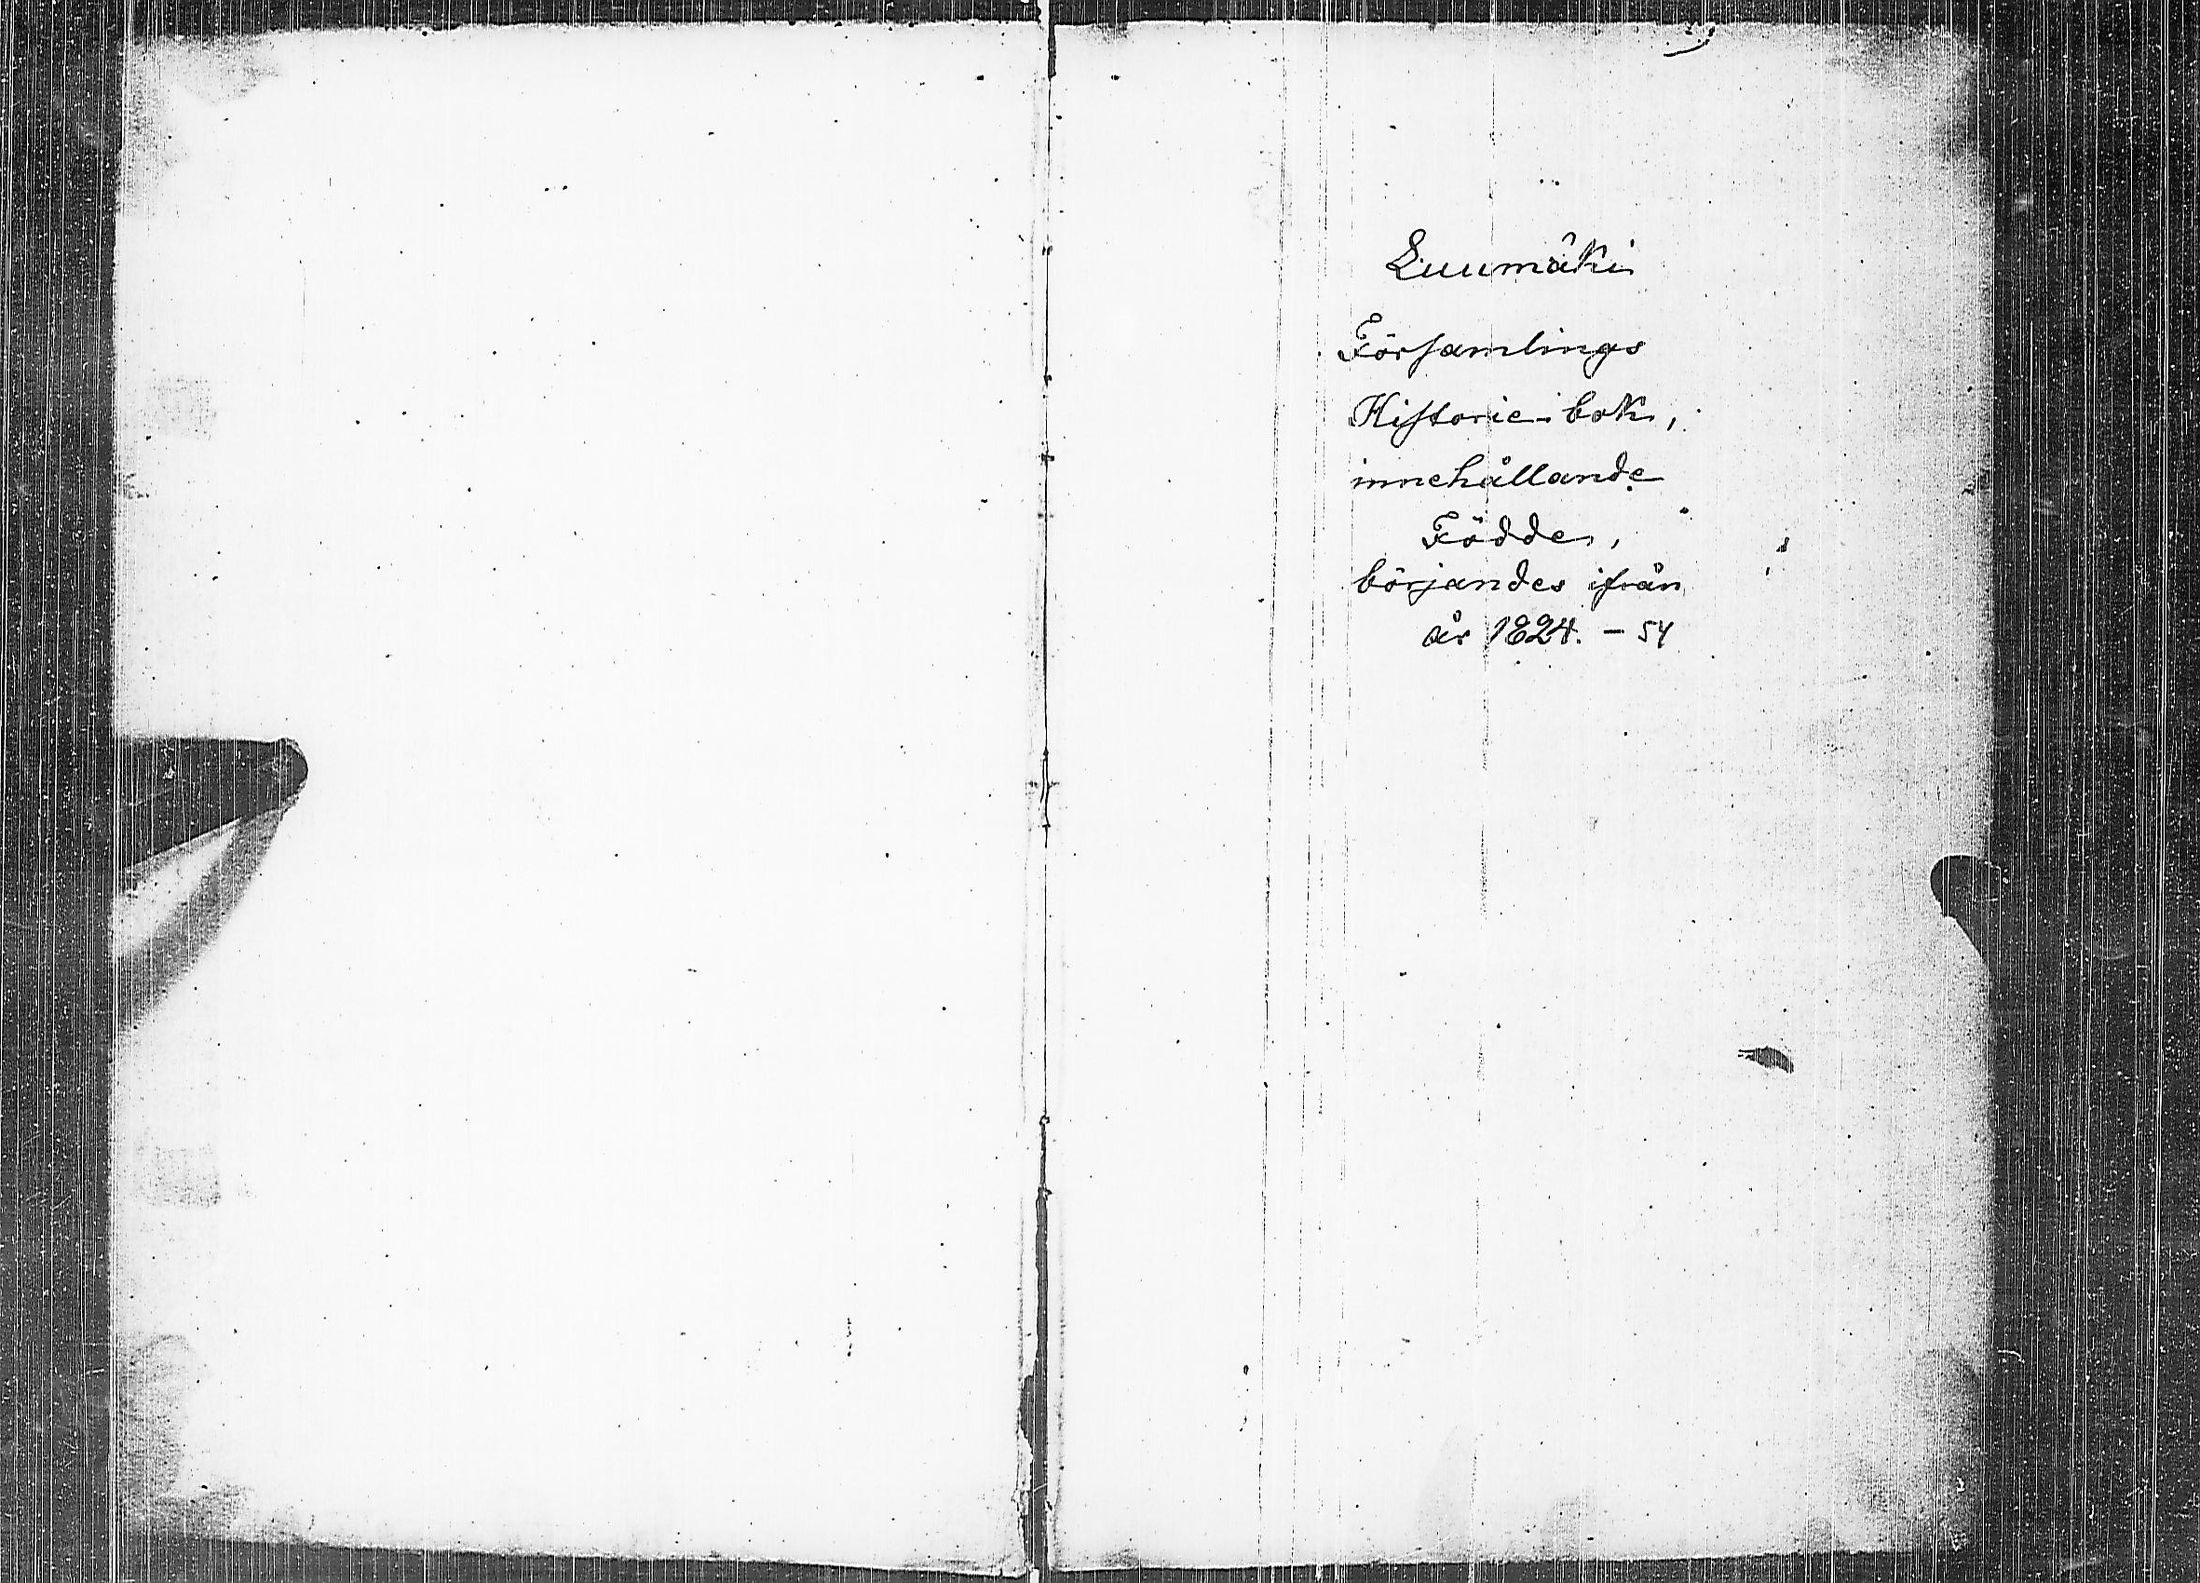 Luumäki
Församlings
Historie-bok,
innehållande
Födde,
börjandes ifrån
år 1824. - 54